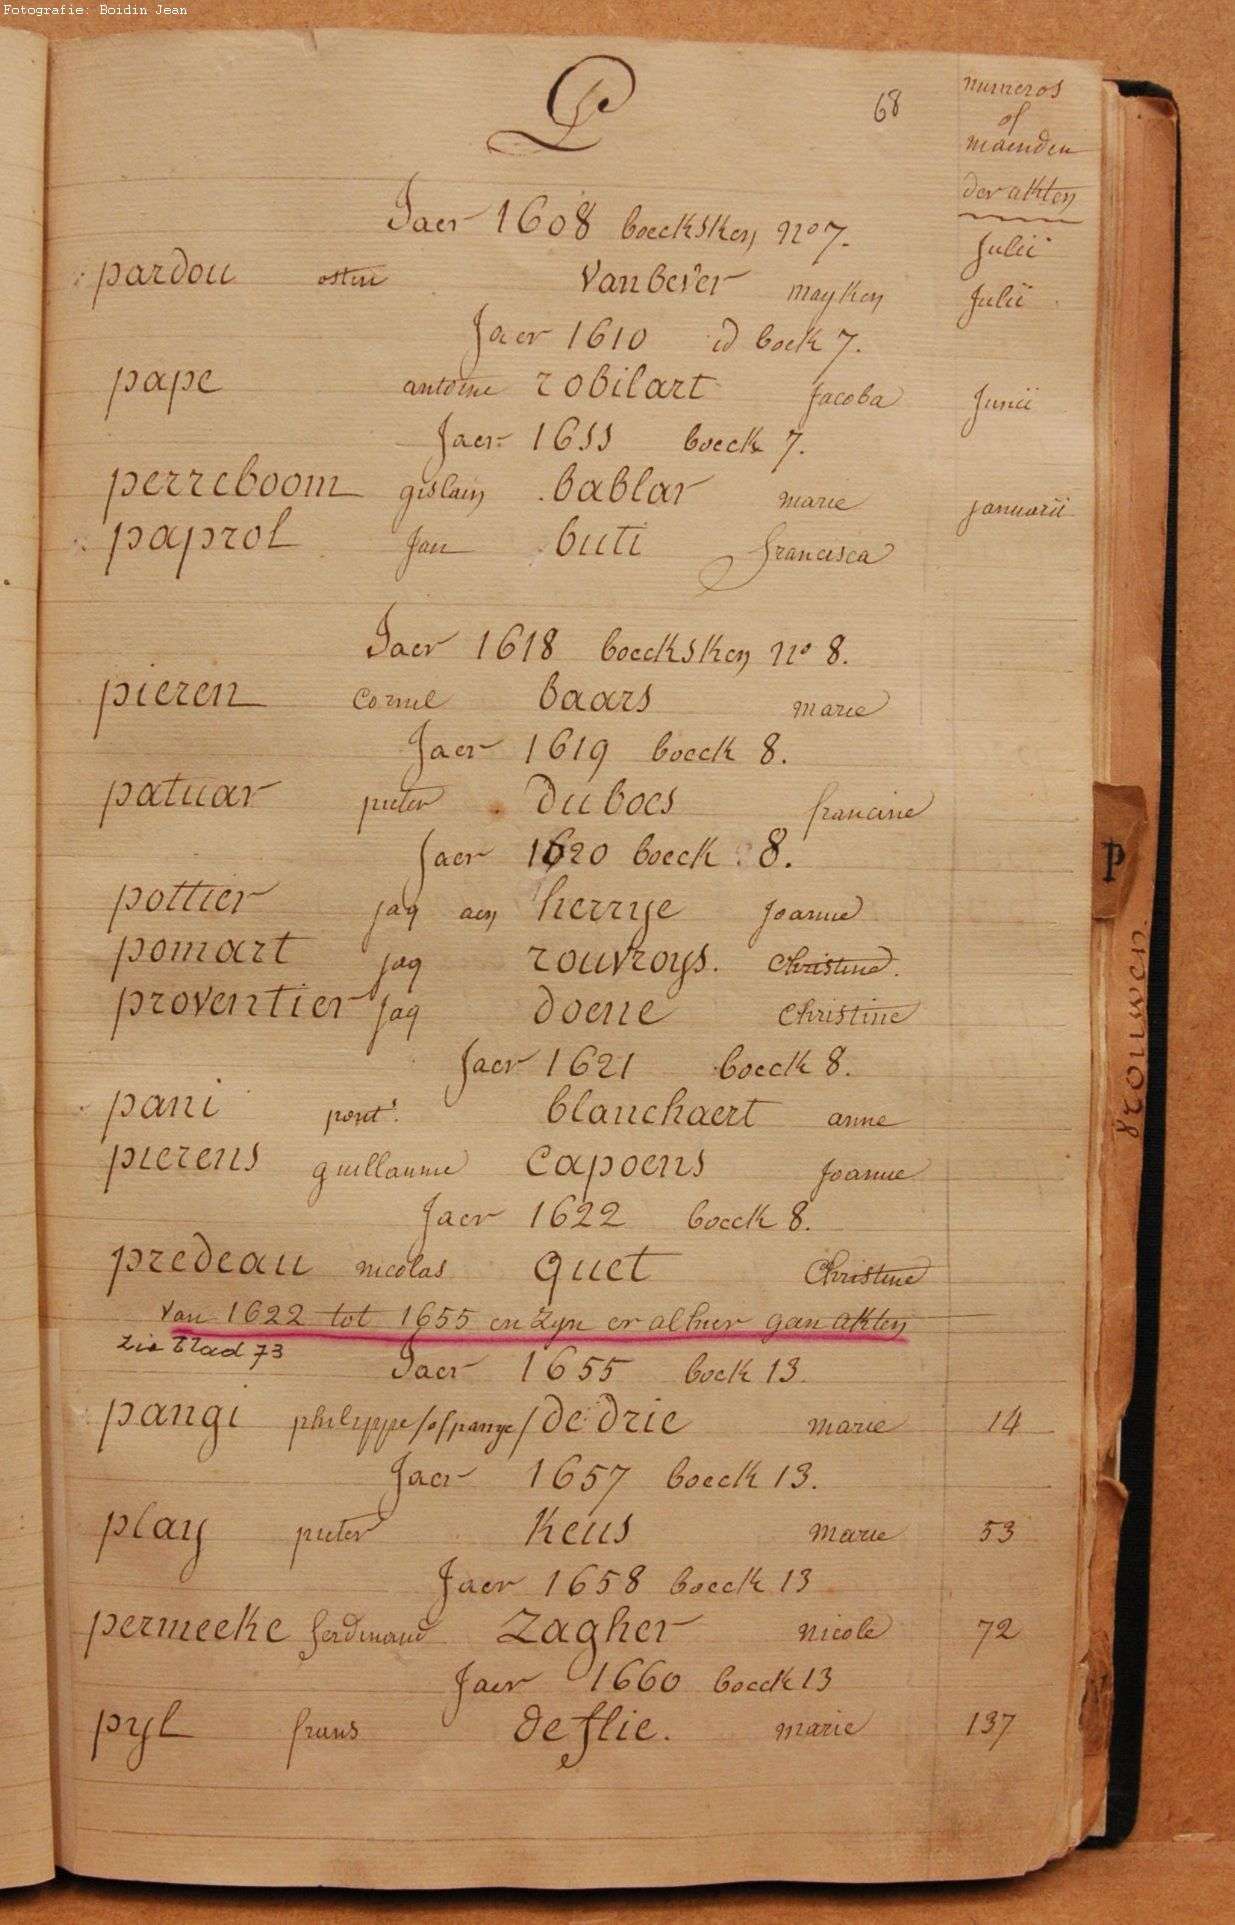 Fotografie: Boidin Jean
P
68
numeros
of
maenden
der akten
Jaer 1608 boecksken no 7.
Julii
pardou ostin vanbever mayken Julii
Jaer 1610 id boek 7.
pape antoine robilart Jacoba Junii
Jaer 1611 boeck 7.
perreboom gislain bablar marie januarii
paprol Jan buti francisca
Jaer 1618 boecksken no 8.
pieren Cornil baars marie
Jaer 1619 boeck 8.
patuar pieter duboes francine
Jaer 1620 boeck 8.
pottier jaq aen herrye Joanne
pomart jaq rouvroys. Christine.
proventier jaq doene Christine
Jaer 1621 boeck 8.
pani pont. blanchaert anne
pierens guillaume Capoens Joanne
Jaer 1622 boeck 8.
predeau nicolas quet Christine
van 1622 tot 1655 en zyn er alhier gan akten
zie blad 73
Jaer 1655 boek 13
pangi philippe /of pange/ de drie marie 14
Jaer 1657 boeck 13.
play pieter Keus marie 53
Jaer 1658 boeck 13
permeeke ferdinand Zagher nicole 72
Jaer 1660 boeck 13
pyl frans de flie. marie 137
P
vrouwen.